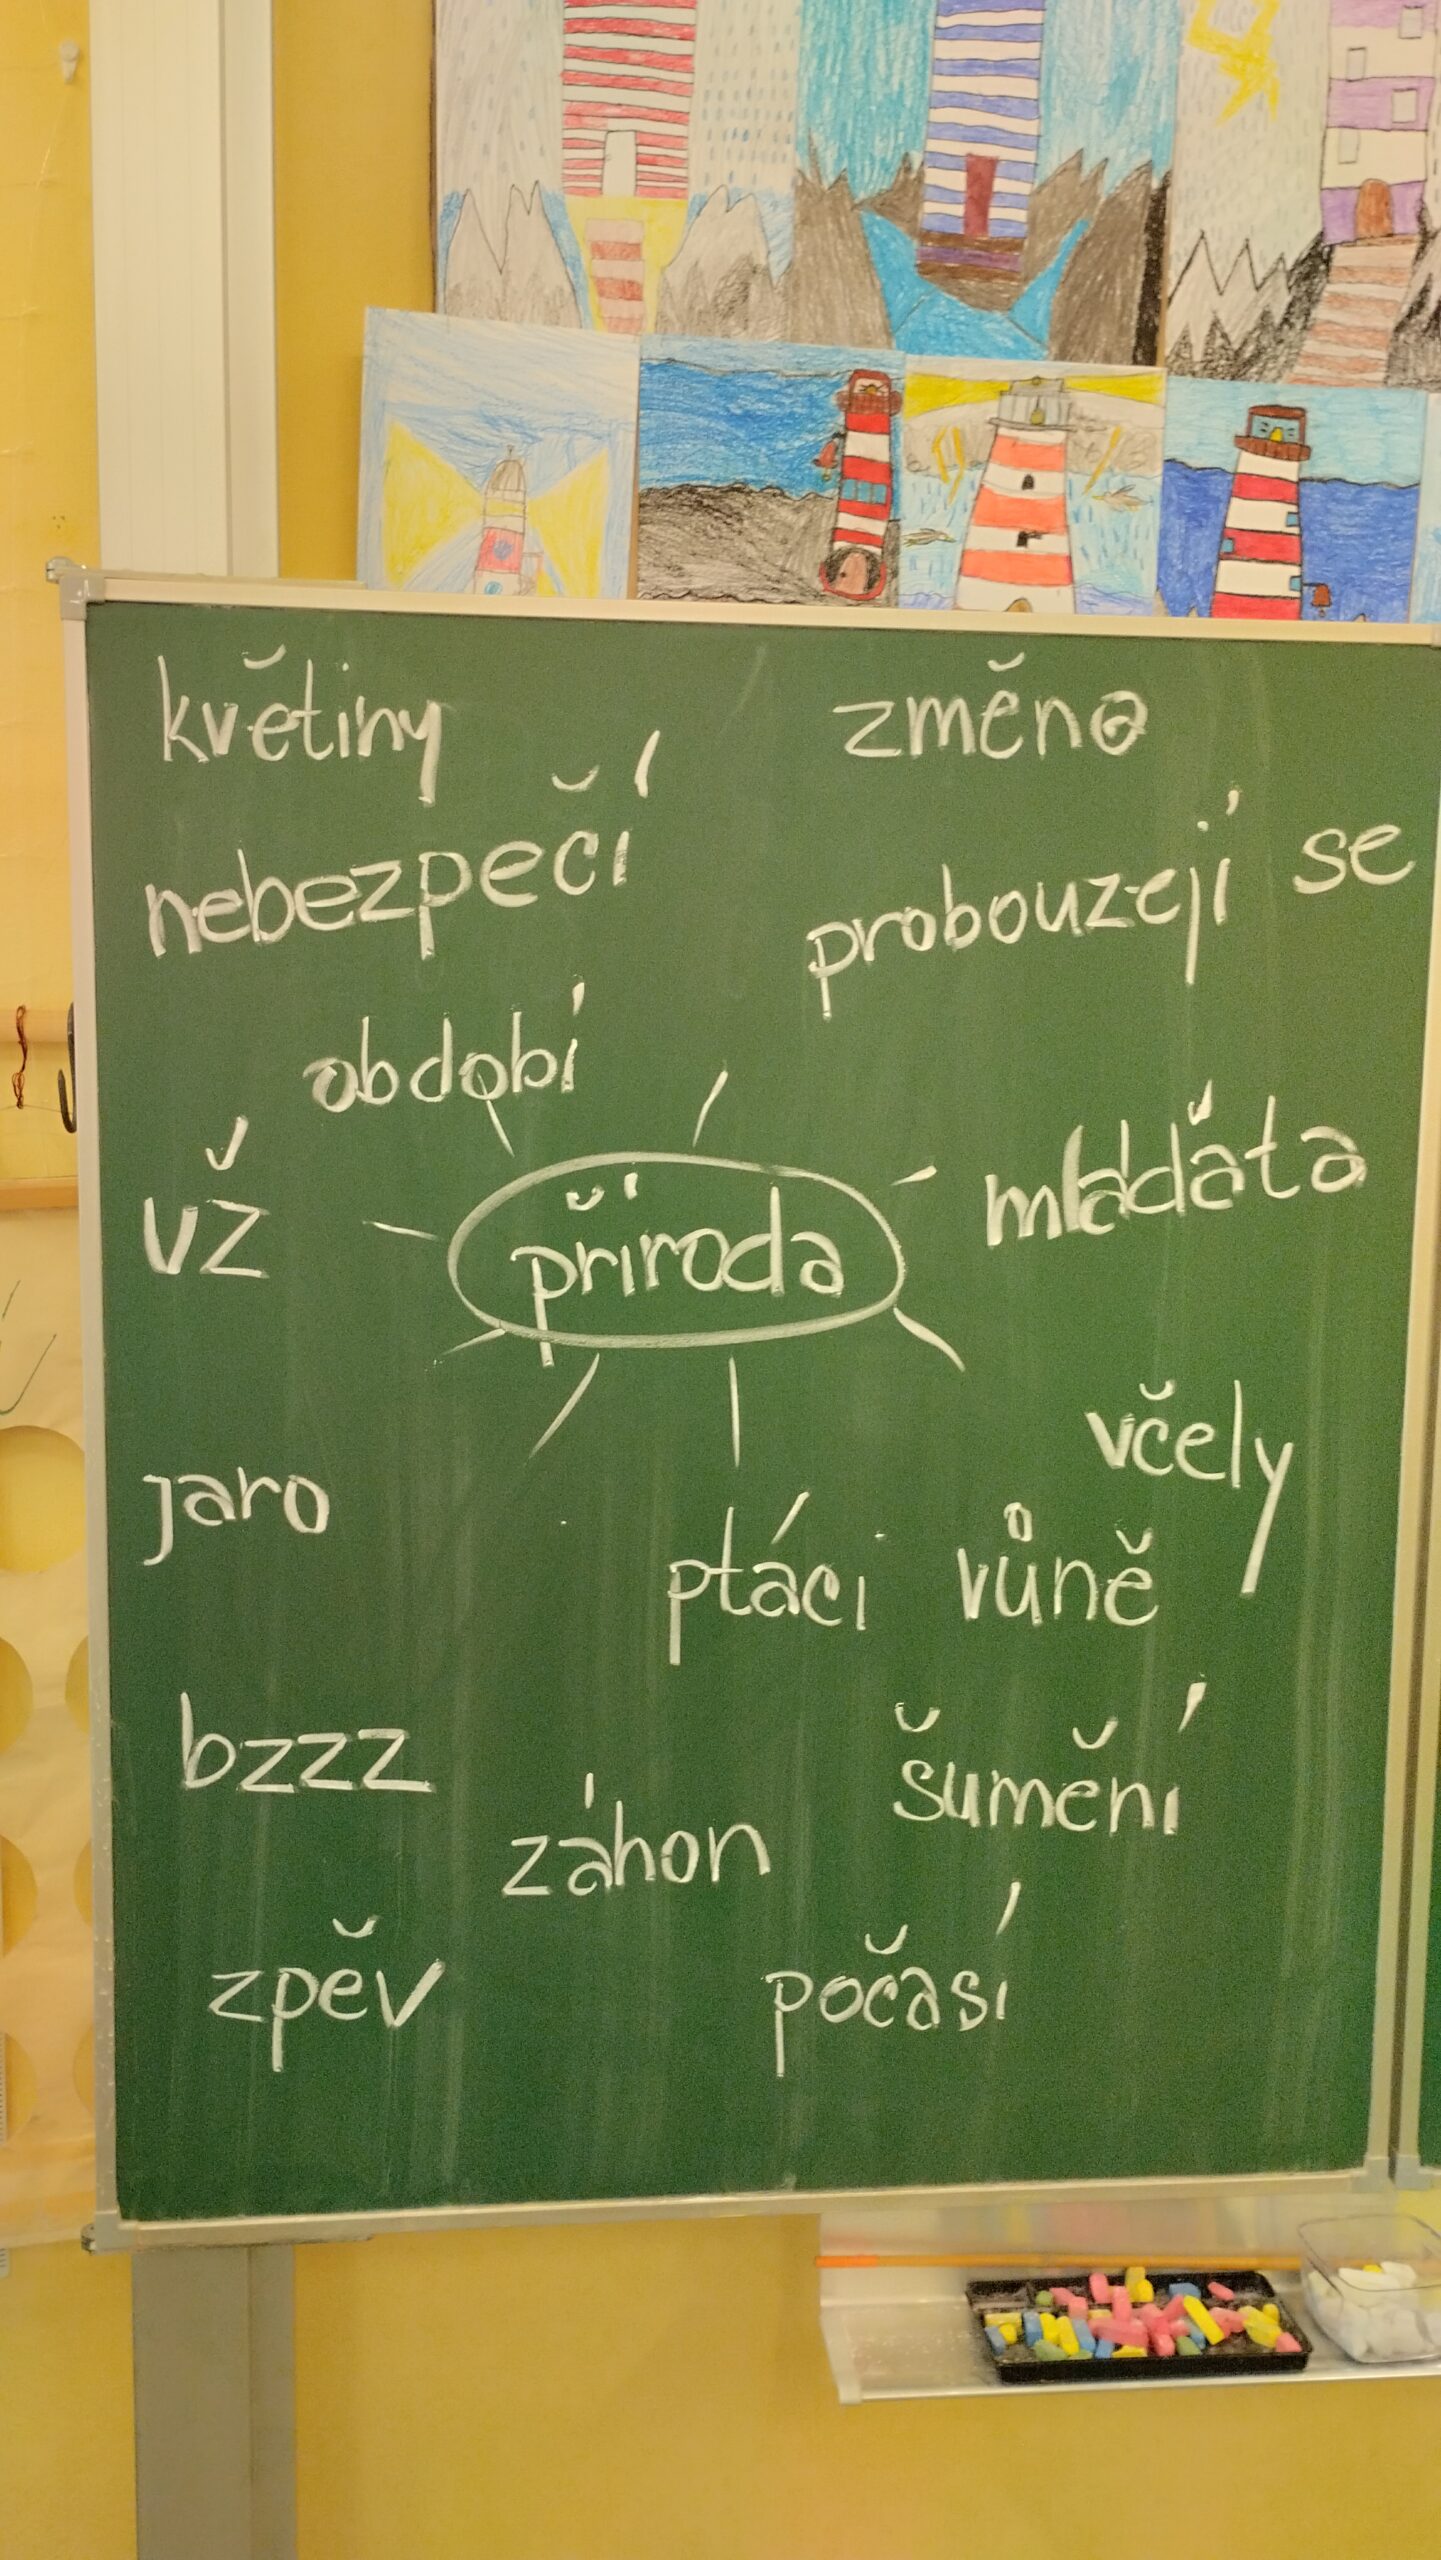 květiny
změna
nebezpečí
probouzejí se
období
mláďata
VŽ
příroda
včely
jaro
ptáci
vůně
bzzz
šumění
záhon
zpěv
počasí